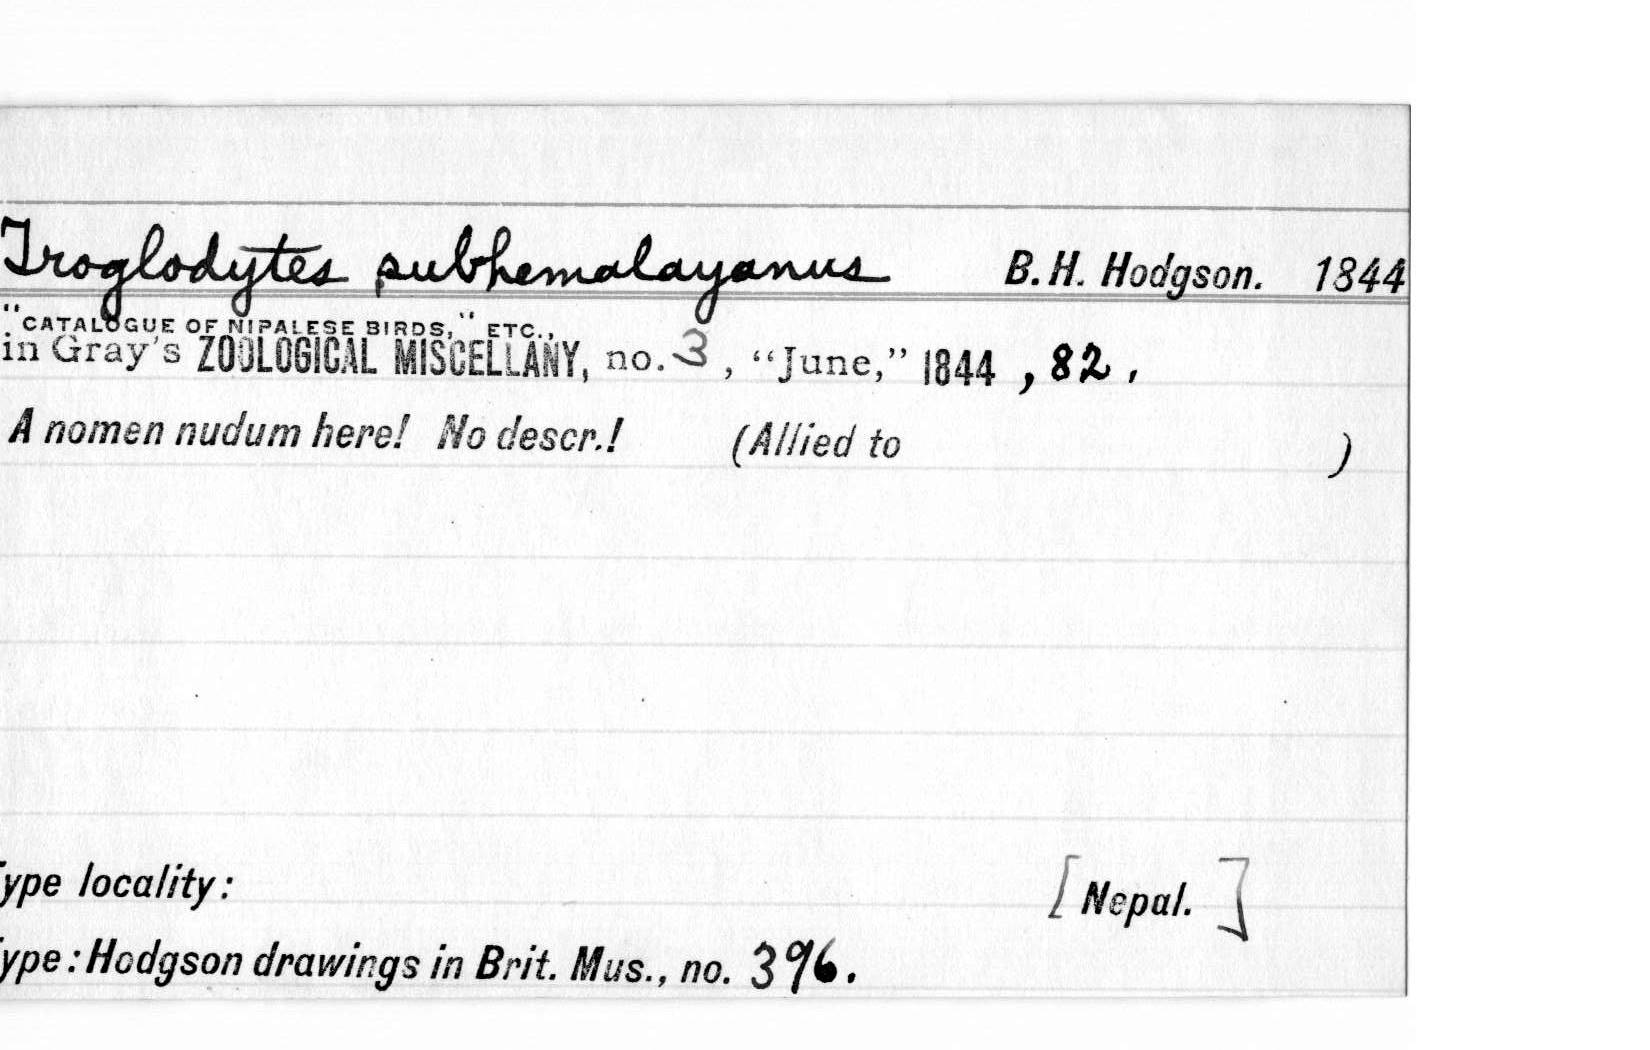 Troglodytes subhemalayanus B. H. Hodgson. 1844
"CATALOGUE OF NIPALESE BIRDS," ETC.,
in Gray's ZOOLOGICAL MISCELLANY, no. 3, "June," 1844, 82.
A nomen nudum here! No descr.! (Allied to )
ype locality: [Nepal.]
ype: Hodgson drawings in Brit. Mus., no. 396.